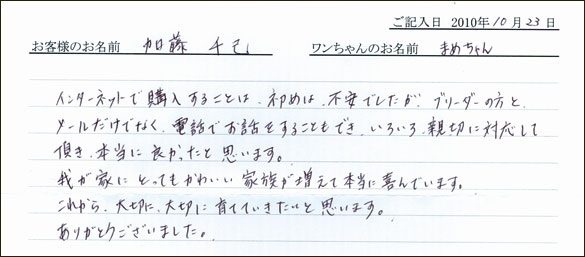 ご記入日 2010年10月23日
お客様のお名前 加藤 千 ワンちゃんのお名前 まめちゃん
インターネットで購入することは、初めは、不安でしたが、ブリーダーの方と、
メールだけでなく、電話でお話をすることもでき、いろいろ、親切に対応して
頂き、本当に良かったと思います。
我が家にとってもかわいい家族が増えて本当に喜んでいます。
これから、大切に、大切に育てていきたいと思います。
ありがとうございました。